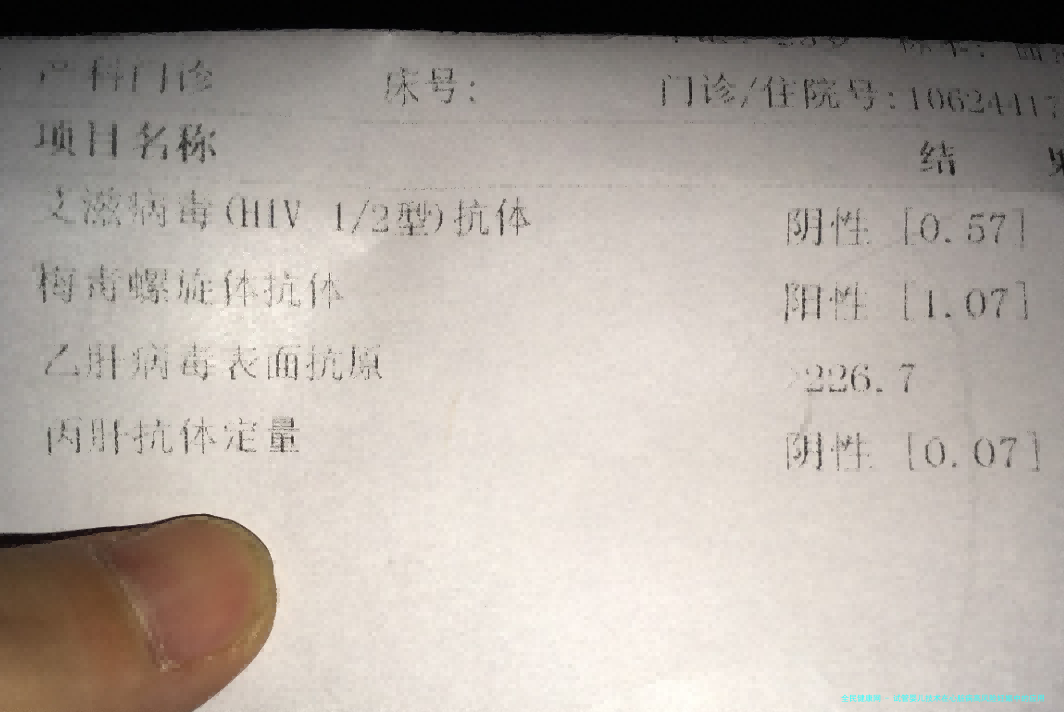 产科门诊 床号: 门诊/住院号:10624417
项目名称 结 果
艾滋病毒(HIV 1/2型)抗体 阴性 [0.57]
梅毒螺旋体抗体 阳性 [1.07]
乙肝病毒表面抗原 >226.7
丙肝抗体定量 阴性 [0.07]